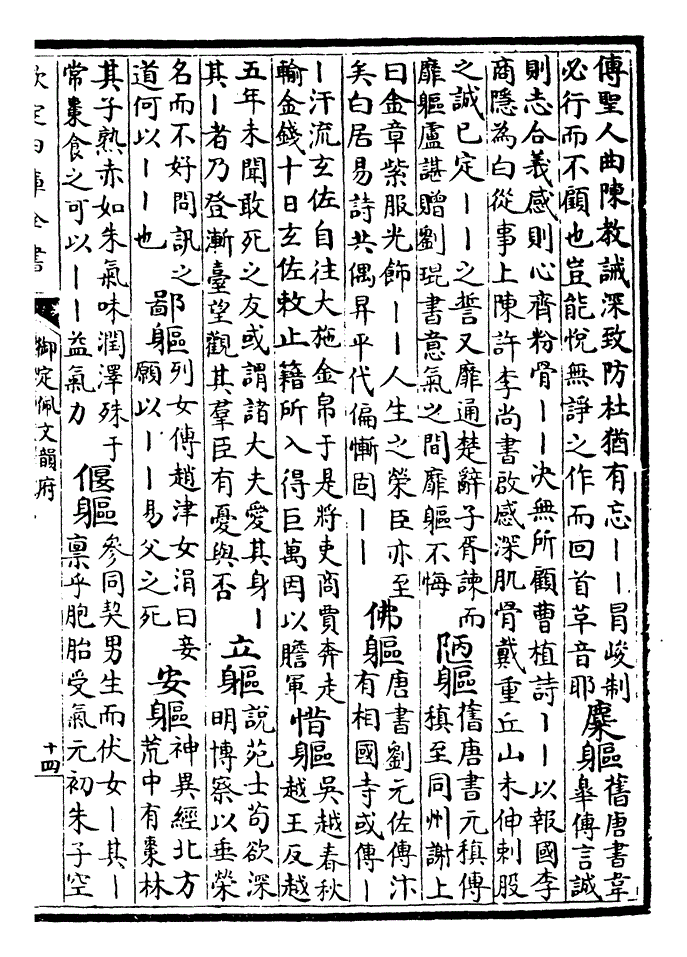 傳聖人曲陳教誡深致防杜猶有忘丨丨冐峻制
必行而不顧也豈能悅無諍之作而回首草音耶
糜軀
舊唐書韋
臯傳言誠
則志合義感則心齊粉骨丨丨决無所顧曹植詩丨丨以報國李
商隱為白從事上陳許李尚書啟感深肌骨戴重丘山未伸刺股
之誠已定丨丨之誓又靡通楚辭子胥諫而
靡軀盧諶贈劉琨書意氣之間靡軀不悔
陋軀
舊唐書元稹傳
稹至同州謝上
曰金章紫服光飾丨丨人生之榮臣亦至
矣白居易詩共偶昇平代偏慚固丨丨
佛軀
唐書劉元佐傳汴
有相國寺或傳丨
丨汗流玄佐自往大施金帛于是將吏商賈奔走
輸金錢十日玄佐敕止籍所入得巨萬因以贍軍
惜軀
吳越春秋
越王反越
五年未聞敢死之友或謂諸大夫愛其身丨
其丨者乃登漸臺望觀其羣臣有憂與否
立軀
說苑士苟欲深
明博察以垂榮
名而不好問訊之
道何以丨丨也
鄙軀
列女傳趙津女涓曰妾
願以丨丨易父之死
安軀
神異經北方
荒中有棗林
其子熟赤如朱氣味潤澤殊于
常棗食之可以丨丨益氣力
偃軀
參同契男生而伏女丨其丨
禀乎胞胎受氣元初朱子空
欽定四庫全書
御定佩文韻府
十四